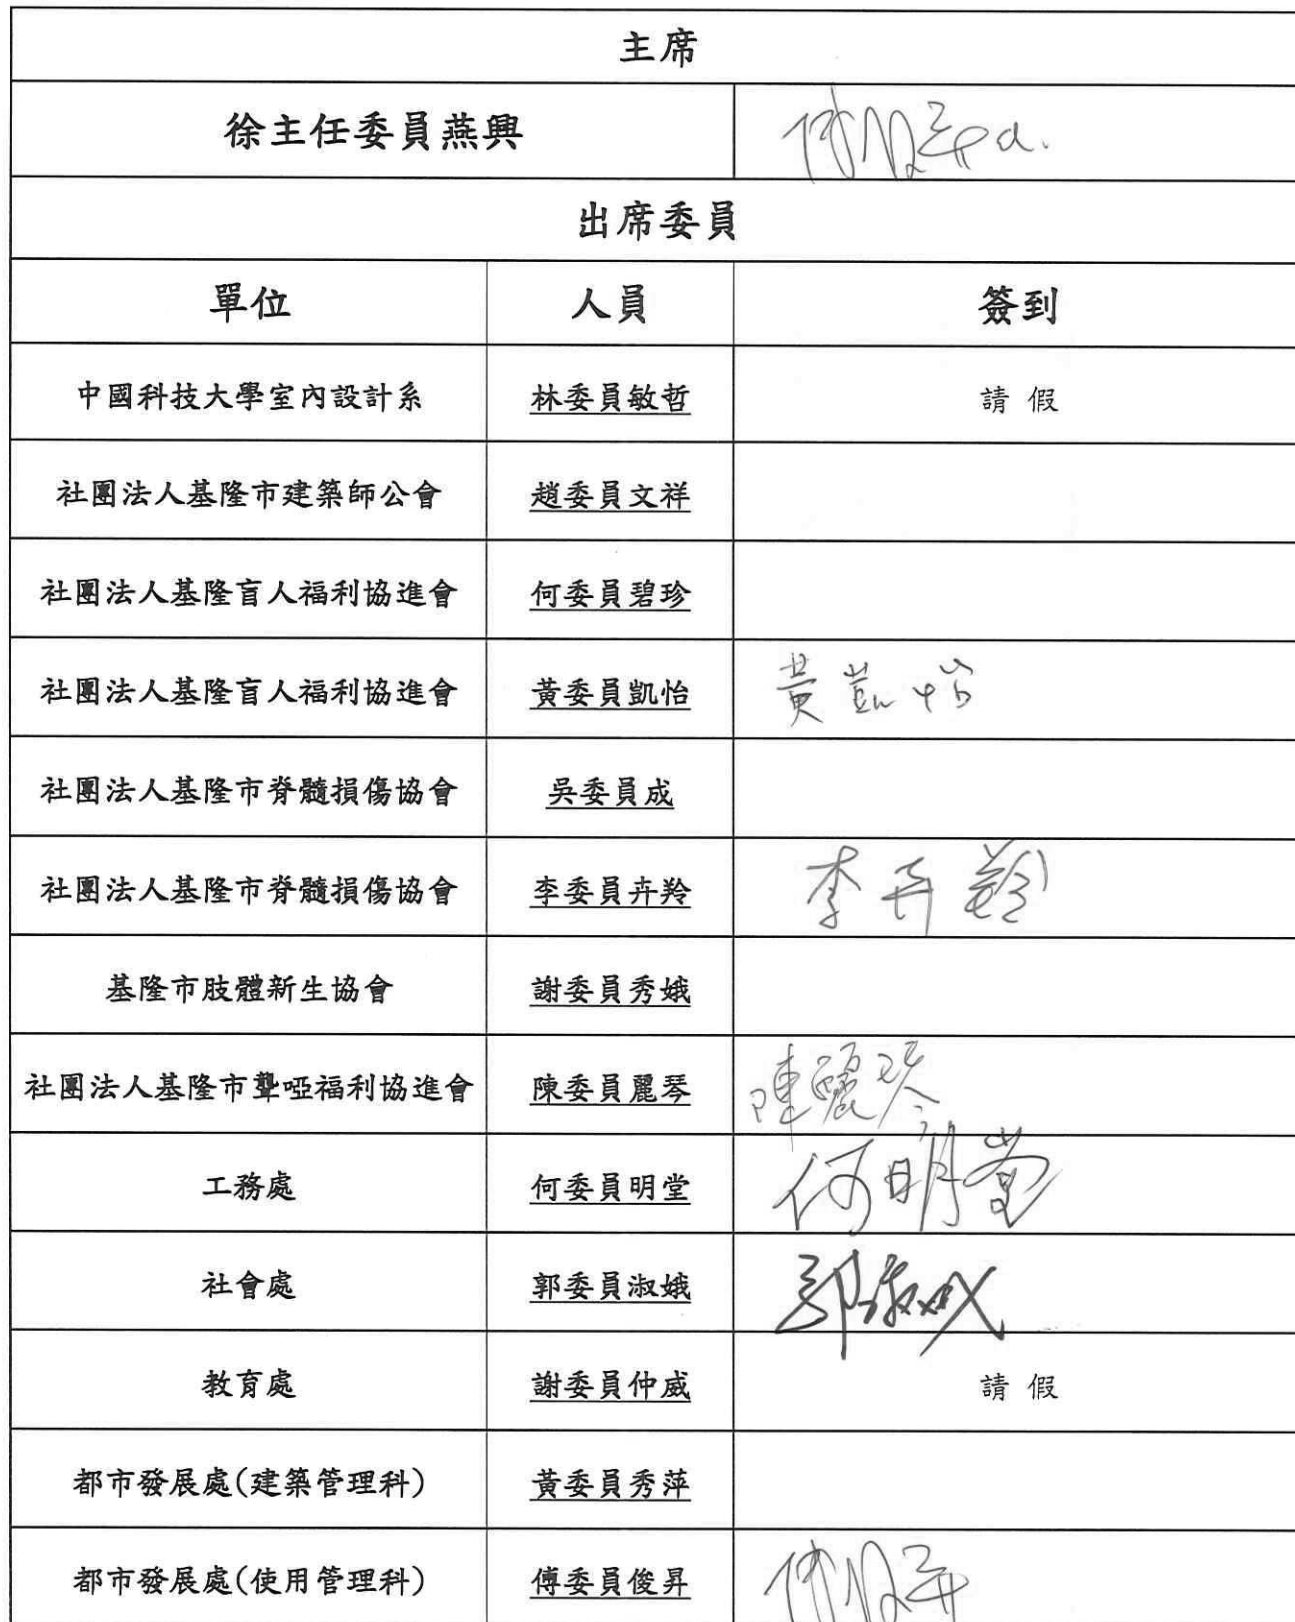 主席
徐主任委員燕興 傅俊昇代.
出席委員
單位 人員 簽到
中國科技大學室內設計系 林委員敏哲 請假
社團法人基隆市建築師公會 趙委員文祥
社團法人基隆盲人福利協進會 何委員碧珍
社團法人基隆盲人福利協進會 黃委員凱怡 黃凱怡
社團法人基隆市脊髓損傷協會 吳委員成
社團法人基隆市脊髓損傷協會 李委員卉羚 李卉羚
基隆市肢體新生協會 謝委員秀娥
社團法人基隆市聾啞福利協進會 陳委員麗琴 陳麗琴
工務處 何委員明堂 何明堂
社會處 郭委員淑娥 郭淑娥
教育處 謝委員仲威 請假
都市發展處(建築管理科) 黃委員秀萍
都市發展處(使用管理科) 傅委員俊昇 傅俊昇